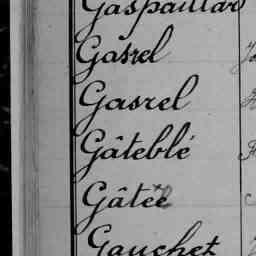 Gaspaillar
Gasrel
Gasrel
Gâteblé
Gâtée
Gauchet